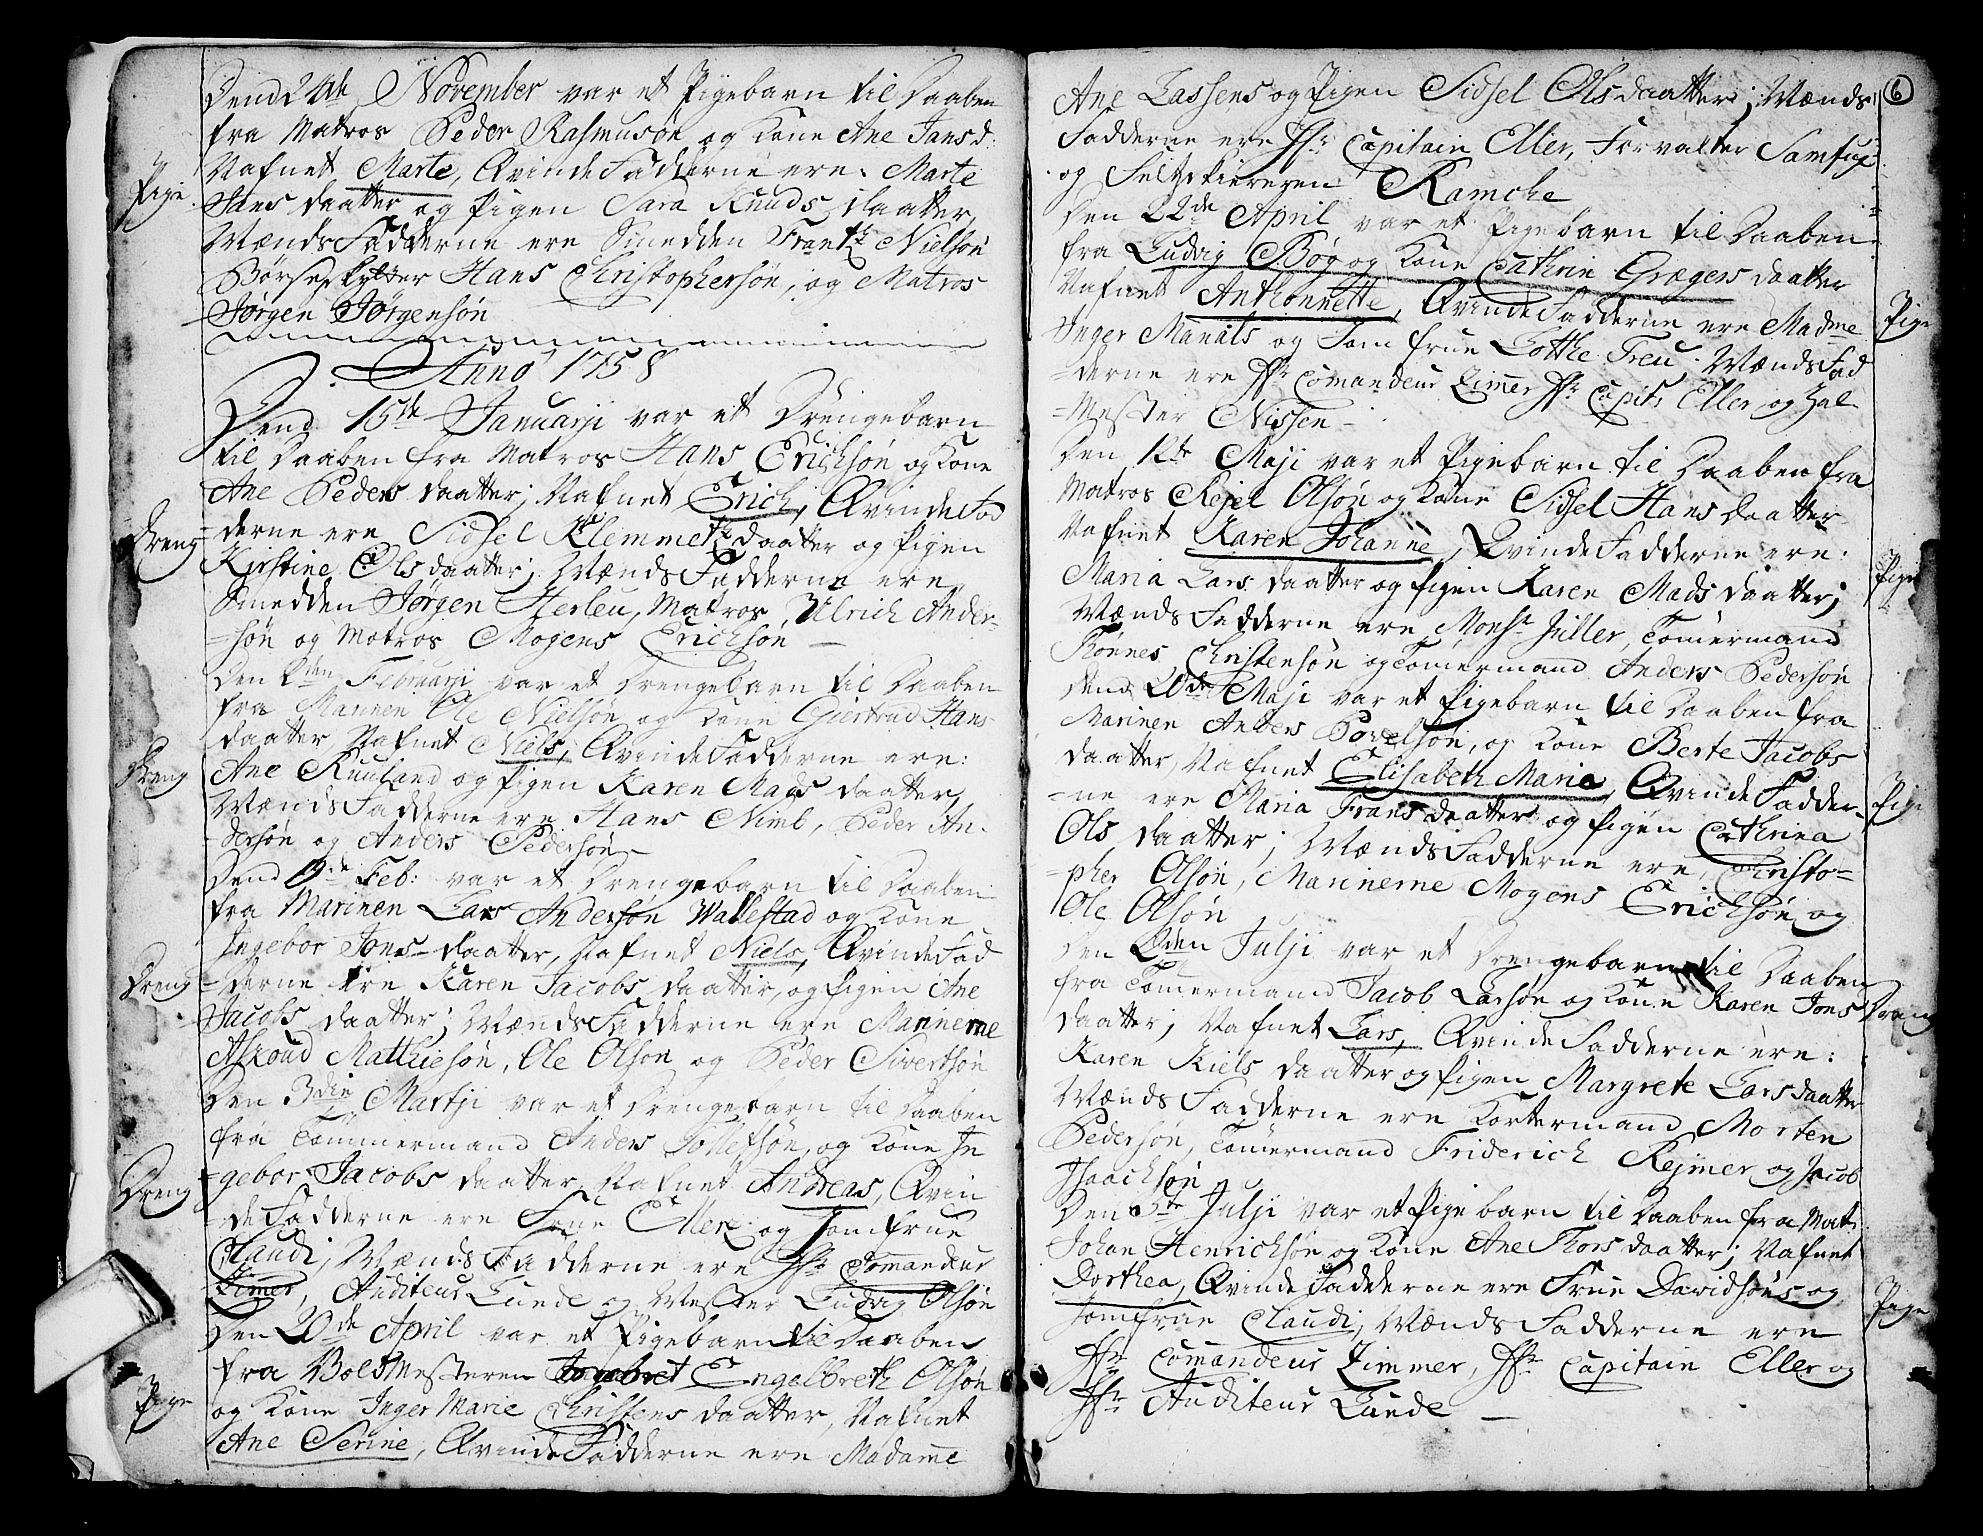 Dend 24de November var et Pigebarn til Daaben
fra Matros Peder Rasmusøn og Kone Ane Jans d:
Pige
Nafnet Marte, Qvinde Fadderne ere. Marte
Jans daatter og Pigen Sara Knuds daatter,
Mænds Fadderne ere Smedden Frantz Nielsøn
Hans Christophersøn, og Matros
Jørgen Jørgensøn
Anno 1758
Dend 15de Januarji var et Drengebarn
til Daaben fra Matros Hans Ericksøn og Kone
Ane Peders daatter; Nafnet Erich, Qvinde Fad
Dreng
=derne ere Sidsel Klemmets daatter og Pigen
Kirstine Ols daatter; Mænds Fadderne ere
Smedden Jørgen Herleu, Matros Ulrich Ander-
=søn og Matros Mogens Ericksøn —
Den 2den Februarji var et Drengebarn til Daaben
fra Marinen Ole Nielsøn og Kone Giertrud Hans
daatter, Nafnet Niels, Qvinde Fadderne ere:
Dreng
Ane Ruuland og Pigen Karen Mads daatter,
Mænds Fadderne ere Hans Niml, Peder An-
-dersøn og Anders Pedersøn —
Dend Feb: var et Drengebarn til Daaben
fra Marinen Lars Andersøn Wallestad og Kone
Ingebor Jons daatter, Nafnet Niels, Qvinde Fad
Dreng
-derne ere Karen Jacobs daatter, og Pigen Ane
Jacobs daatter; Mænds Fadderne ere Marinerne
Askoud Matthiesøn, Ole Olson og Peder Sivertsøn
Den 3die Martji var et Drengebarn til Daaben
fra Tømmermand Anders Tollefsøn, og Kone In
Dreng
=gebor Jacobs daatter, Nafnet Andreas, Qvin
-de Fadderne ere Frue Ellere og Jomfrue
Claudi, Mænds Fadderne ere Hr Comandeur
Zimer, Auditeur Lunde og Mester Ludvig Olsøn
Den 20de April var et Pigebarn til Daaben
fra Bolsmesteren Engelbreth Olsøn
Pige
og Kone Inger Marie Christens daatter, Nafnet
Ane Serine, Qvinde Fadderne ere Madame
6
Ane Lassens og Pigen Sidsel Ols daatter; Mænds
Fadderne ere Hr Capitain Eller, Forvalter
og Feltskieregen Ramcke
Den 22de April var et Pigebarn til Daaben
fra Ludvig Bøg og Kone Cathrin Grægers daatter
Pige
Nafnet Anthonnette, Qvinde Fadderne ere Madme
Inger Manåls og Jomfrue Lothe Treu; Mænds Fad
-derne ere Hr Comandeur Zimer Hr Capit: Eller og
-Mester Nissen —
Den 12te Maji var et Pigebarn til Daaben fra
Matros Kejel Olsøn og Kone Sidsel Hans daatter
Nafnet Karen Johanne, Qvinde Fadderne ere:
Pige
Maria Lars daatter og Pigen Karen Mads daatter;
Mænds Fadderne ere Monsr Juller, Tømermand
Tønnes Christensøn og Tømermand Anders Pedersøn
Dend 20de Maji var et Pigebarn til Daaben fra
Marinen Anders Povelsøn, og Kone Berte Jacobs
daatter, Nafnet Elisabeth Maria, Qvinde Fadder-
Pige
-ne ere Maria Frans daatter og Pigen Cathrina
Ols daatter; Mænds Fadderne ere, Christo=
-pher Olsøn, Marinerne Mogens Ericksøn og
Ole Olsøn
Den 2den Julji var et Drengebarn til Daaben
fra Tømermand Jacob Larsøn og Kone Karen Jons
Dreng
daatter; Nafnet Lars, Qvinde Fadderne ere:
Karen Kiels daatter og Pigen Margrete Lars daatter
Mænds Fadderne ere Kortermand Morten
Pedersøn, Tømermand Friderich Rejmer og Jacob
Isaachsøn
Den Julji var et Pigebarn til Daaben fra Mat:
Johan Henricksøn og Kone Ane Thors daatter; Nafnet
Dorthea, Qvinde Fadderne ere Frue Davidsøns og
Pige
Jomfrue Claudi, Mænds Fadderne ere
Hr Comandeur Zimmer, Hr Capitain Eller og
Hr Auditeur Lunde —